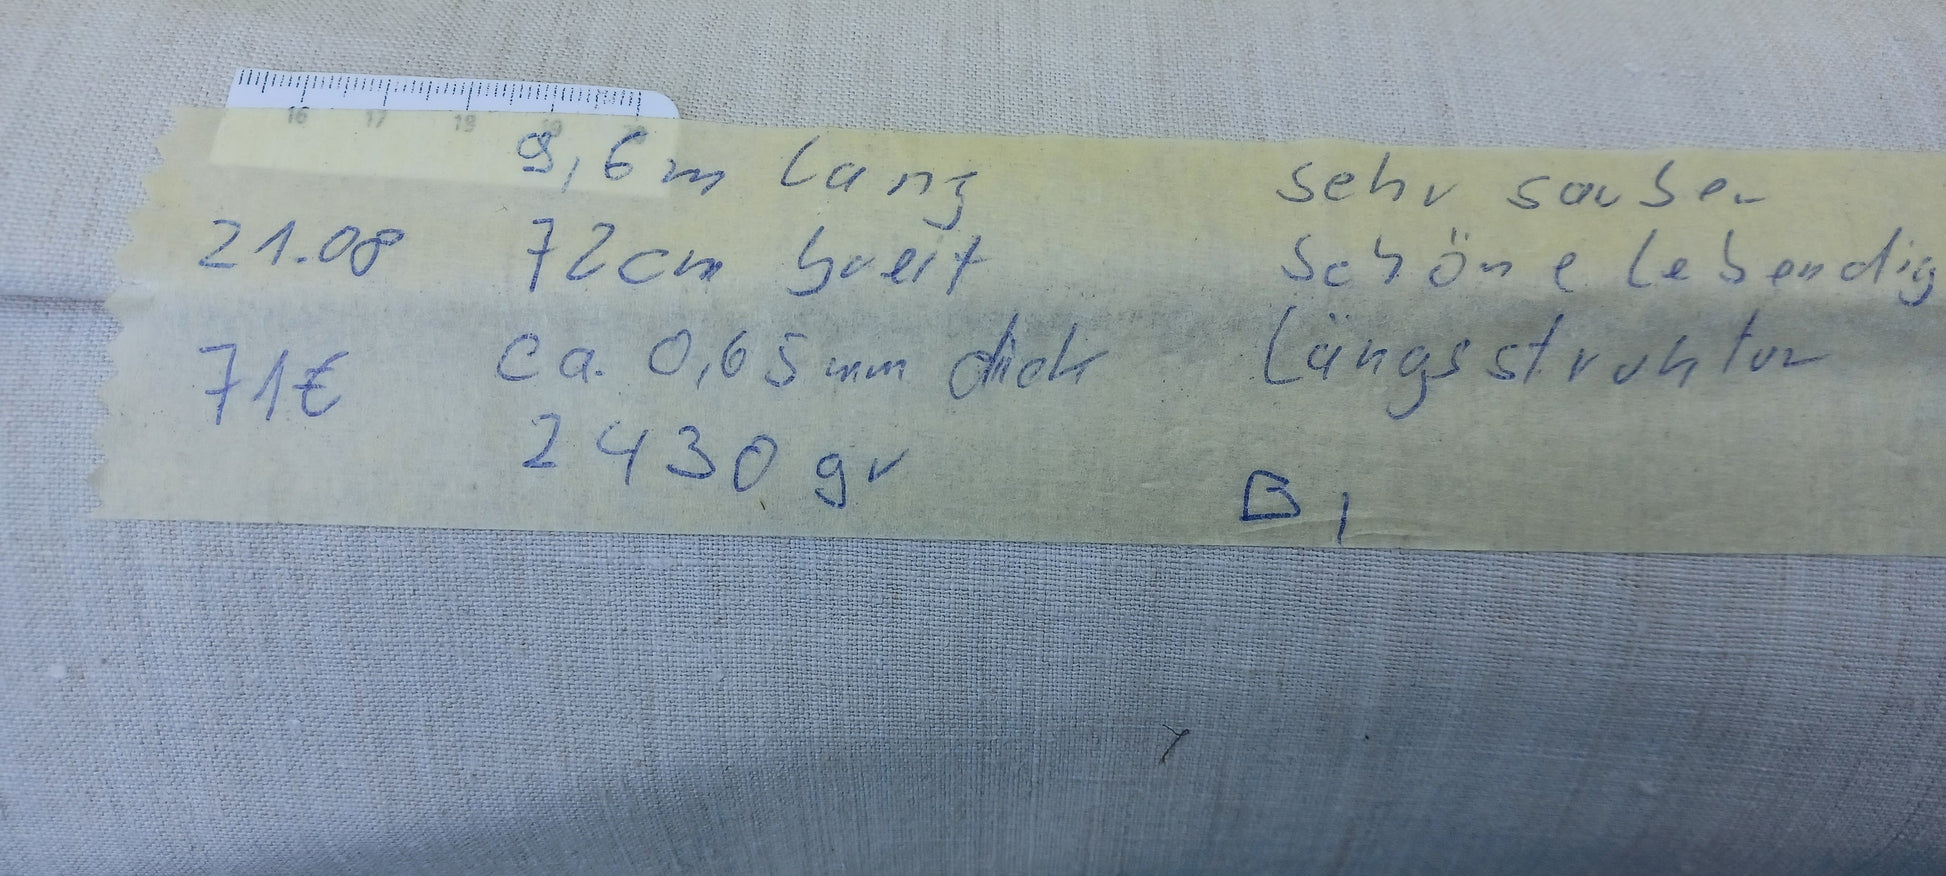 16 17 19 20
9,6m lang
sehr sauber
21.08
72cm breit
schöne lebendig
71€
ca. 0,65mm dick
Längsstruktur
2430 gr
B1